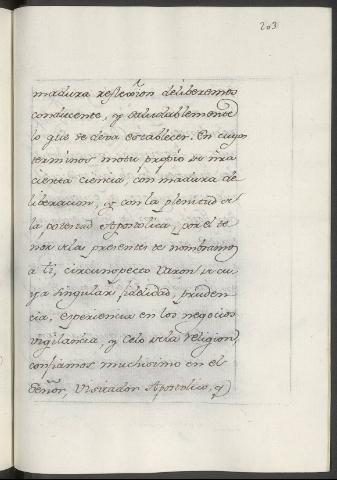 203
madura reflexion deliberemos
conducente, y saludablemente
lo que se deva establecer. En cuyos
terminos motu propio de nra
cierta ciencia, con madura de
liberacion, y con la plenitud de
la potestad Apostolica, por el te
nor de las presentes te nombramos
a ti, circunspecto Varon de cu
ya singular fidelidad, pruden
cia, experiencia en los negocios
vigilancia, y celo de la religion,
confiamos muchisimo en el
Señor, Visitador Apostolico, y